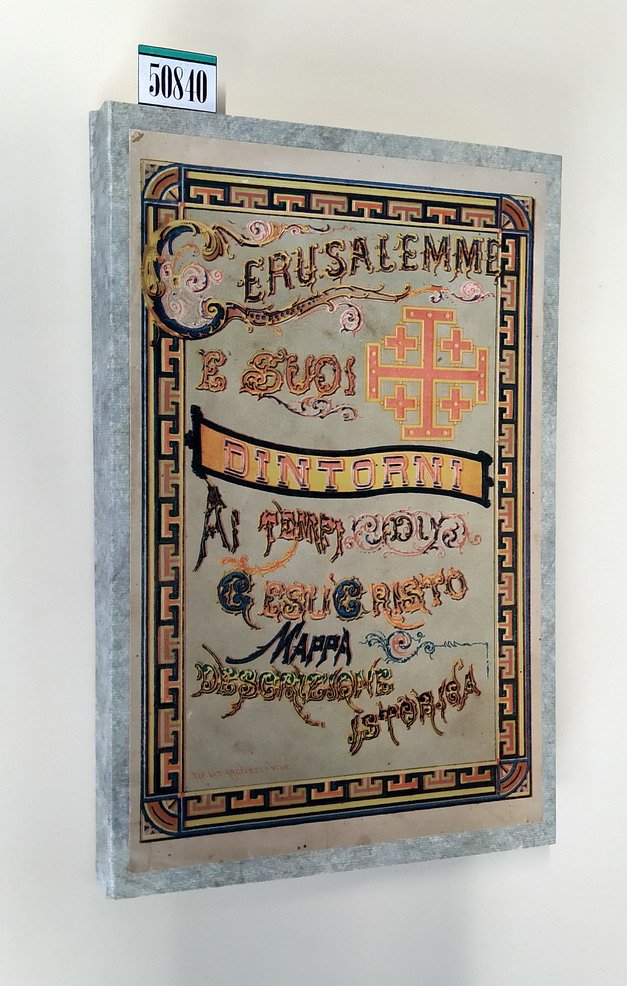 50840
GERUSALEMME
E SUOI
DINTORNI
AI TEMPI DI N. S.
GESU CRISTO
MAPPA
DESCRIZIONE
ISTORICA